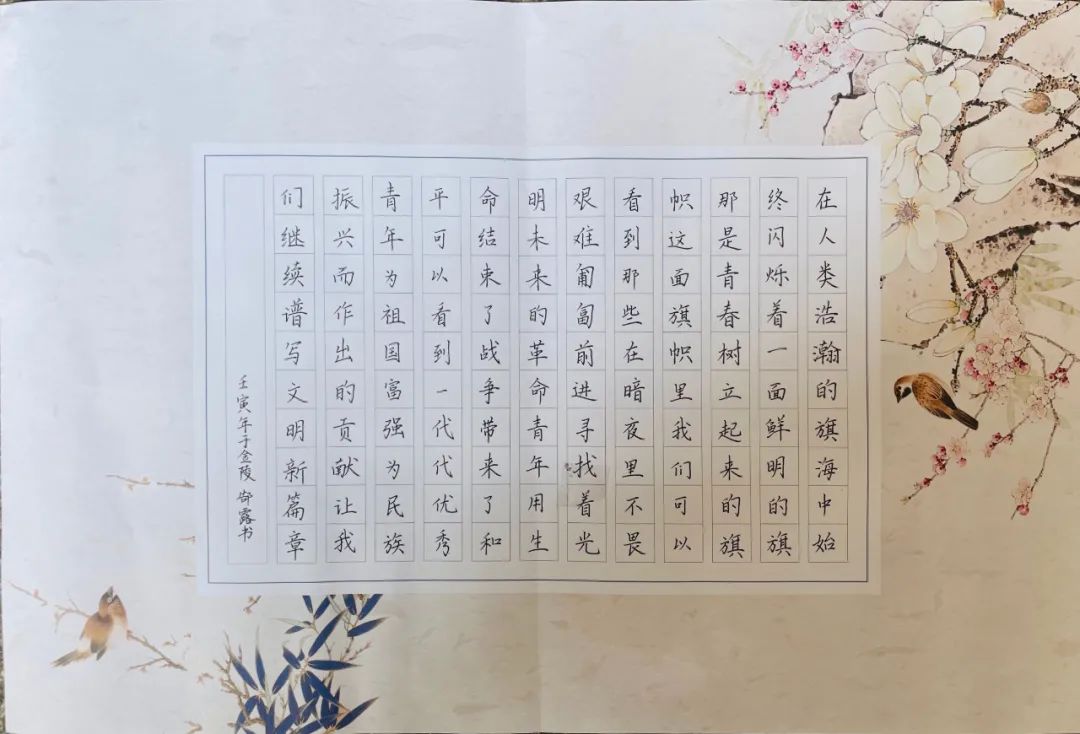 在人类浩瀚的旗海中始
终闪烁着一面鲜明的旗
那是青春树立起来的旗
帜这面旗帜里我们可以
看到那些在暗夜里不畏
艰难匍匐前进寻找着光
明未来的革命青年用生
命结束了战争带来了和
平可以看到一代代优秀
青年为祖国富强为民族
振兴而作出的贡献让我
们继续谱写文明新篇章
壬寅年于金陵 露书